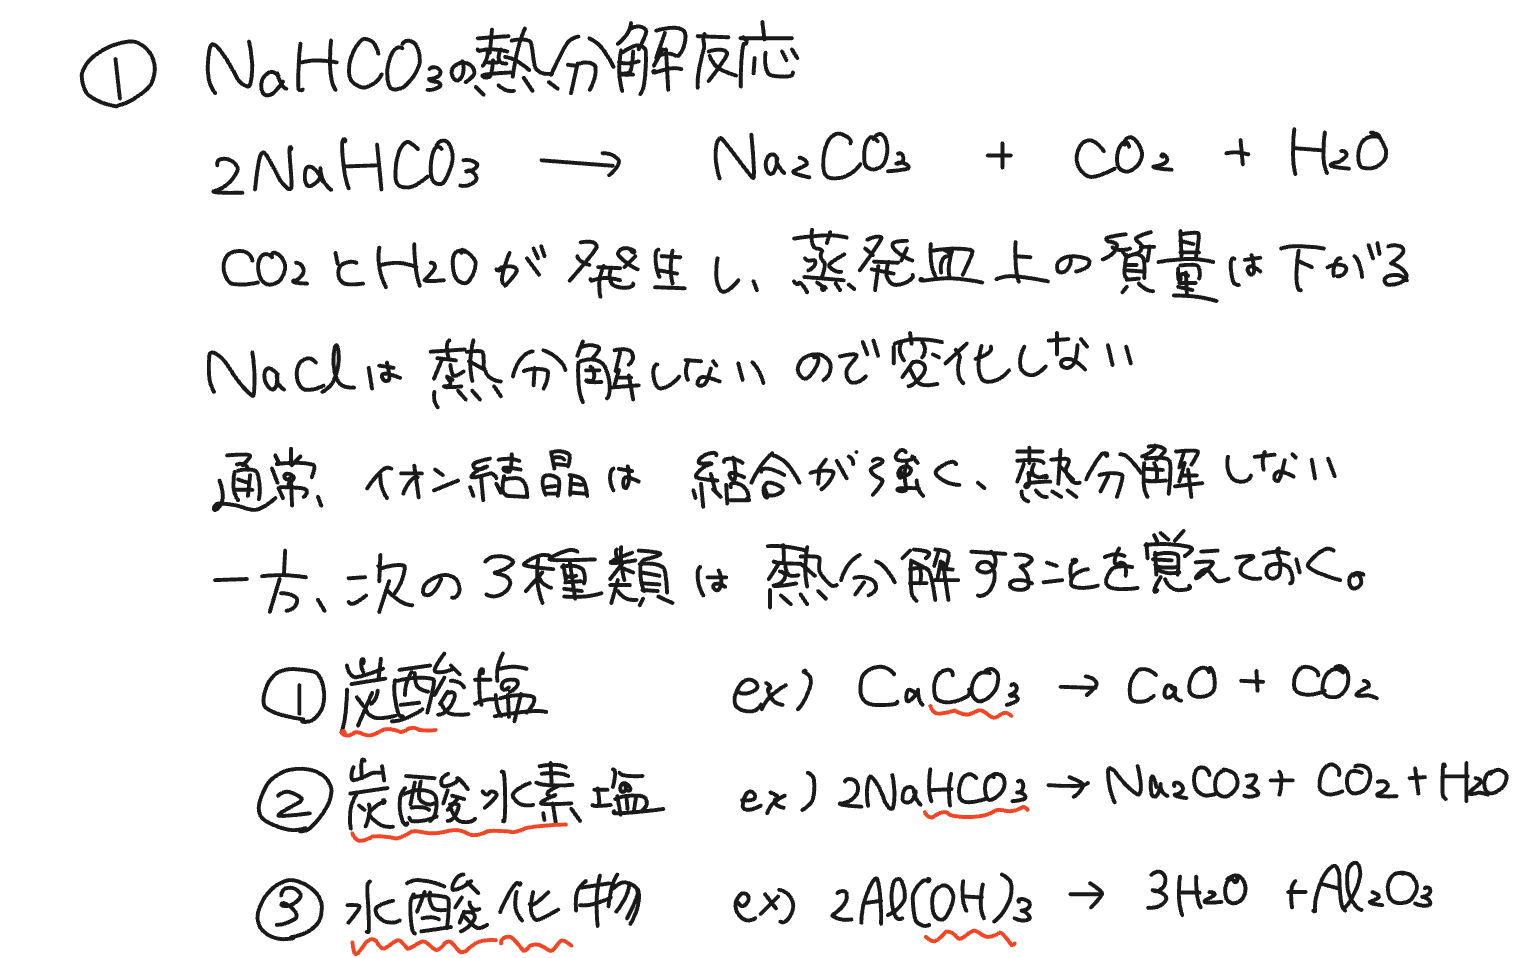 ① NaHCO₃の熱分解反応
2NaHCO₃ → Na₂CO₃ + CO₂ + H₂O
CO₂とH₂Oが発生し、蒸発皿上の質量は下がる
NaClは熱分解しないので変化しない
通常、イオン結晶は結合が強く、熱分解しない
一方、次の3種類は熱分解することを覚えておく。
①炭酸塩 ex) CaCO₃ → CaO + CO₂
②炭酸水素塩 ex) 2NaHCO₃ → Na₂CO₃ + CO₂ + H₂O
③水酸化物 ex) 2Al(OH)₃ → 3H₂O + Al₂O₃